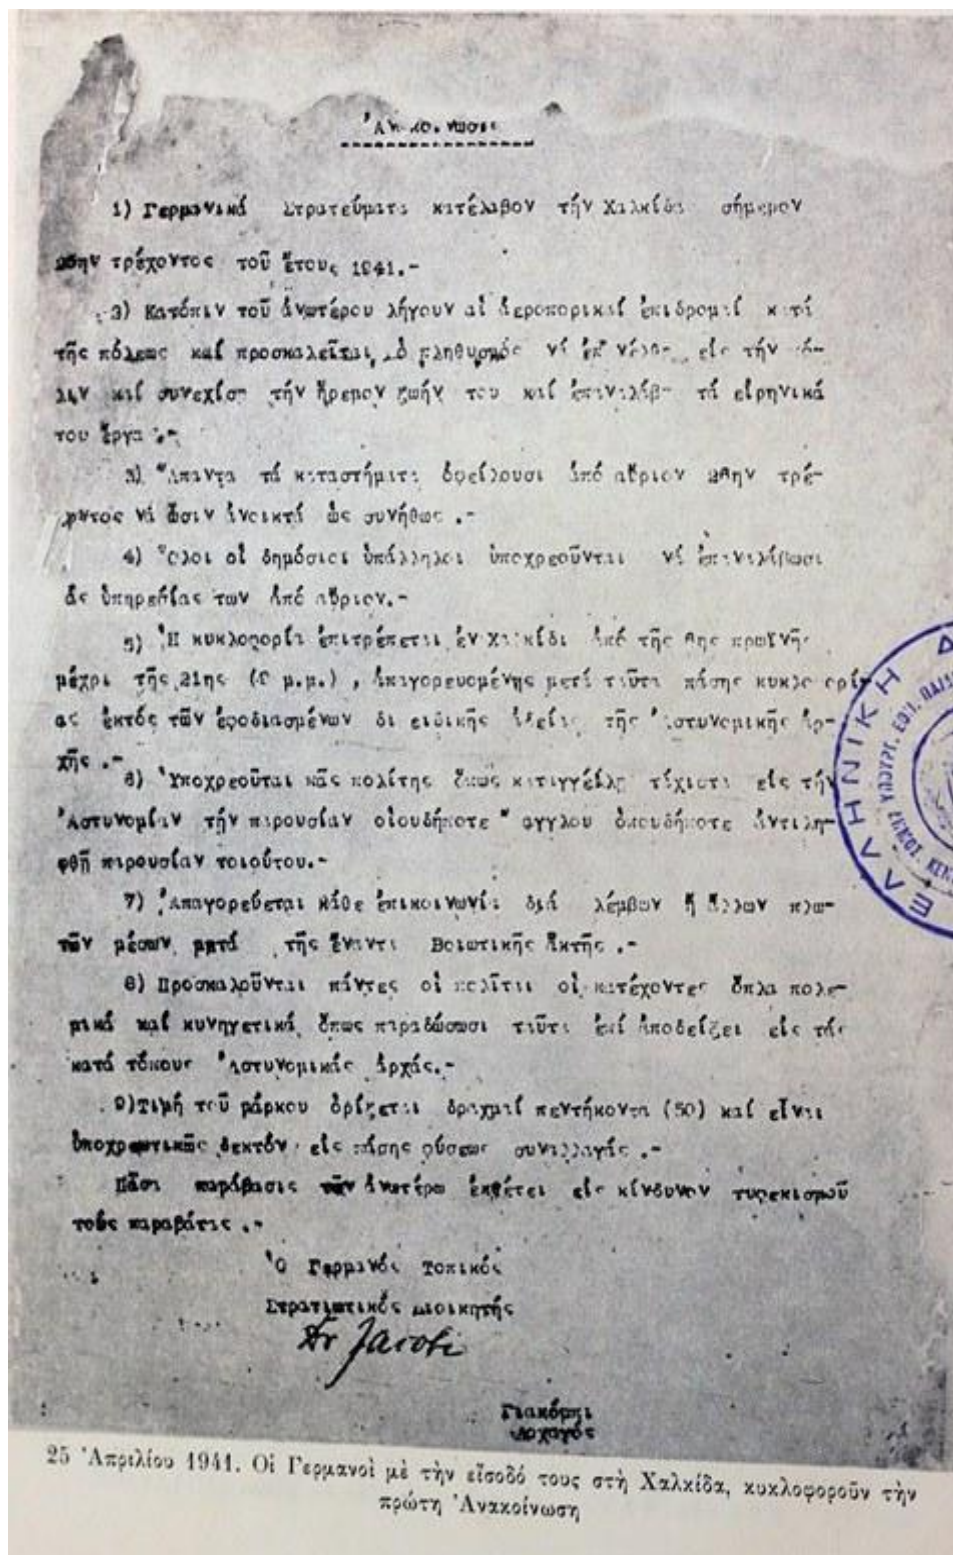 Ἀνακοίνωσις
1) Γερμανικά Στρατεύματα κατέλαβον τήν Χαλκίδα σήμερον
25ην τρέχοντος τοῦ ἔτους 1941.-
2) Κατόπιν τοῦ ἀνωτέρου λήγουν αἱ ἀεροπορικαί ἐπιδρομαί κατά
τῆς πόλεως καί προσκαλεῖται ὁ πληθυσμός νά ἐπανέλθη εἰς τήν πό-
λιν καί συνεχίση τήν ἤρεμον ζωήν του καί ἐπαναλάβη τά εἰρηνικά
του ἔργα .-
3) Ἅπαντα τά καταστήματα ὀφείλουσι ἀπό αὔριον 26ην τρέ-
χοντος νά ὦσιν ἀνοικτά ὡς συνήθως .-
4) Ὅλοι οἱ δημόσιοι ὑπάλληλοι ὑποχρεοῦνται νά ἐπαναλάβωσι
ἀς ὑπηρεσίας των ἀπό αὔριον.-
5) Ἡ κυκλοφορία ἐπιτρέπεται ἐν Χαλκίδι ἀπό τῆς 6ης πρωϊνῆς
μέχρι τῆς 21ης (9 μ.μ.) , ἀπαγορευομένης μετά ταῦτα πάσης κυκλοφορί
ας ἐκτός τῶν ἐφοδιασμένων δι εἰδικῆς ἀδείας τῆς Ἀστυνομικῆς ἀρ-
χῆς .-
6) Ὑποχρεοῦται πᾶς πολίτης ὅπως καταγγέλλη τάχιστα εἰς τήν
Ἀστυνομίαν τήν παρουσίαν οἱουδήποτε Ἄγγλου ὁπουδήποτε ἀντιλη-
φθῆ παρουσίαν τοιούτου.-
7) Ἀπαγορεύεται κάθε ἐπικοινωνία διά λέμβων ἤ ἄλλων πλω-
τῶν μέσων μετά τῆς ἔναντι Βοιωτικῆς ἀκτῆς .-
8) Προσκαλοῦνται πάντες οἱ πολῖται οἱ κατέχοντες ὅπλα πολε-
μικά καί κυνηγετικά ὅπως παραδώσωσι ταῦτα ἐπί ἀποδείξει εἰς τάς
κατά τόπους Ἀστυνομικάς ἀρχάς.-
9)Τιμή τοῦ μάρκου ὁρίζεται δραχμαί πεντήκοντα (50) καί εἶναι
ὑποχρεωτικῶς δεκτόν εἰς πάσης φύσεως συναλλαγάς .-
Πᾶσα παράβασις τῶν ἀνωτέρω ἐκθέτει εἰς κίνδυνον τυφεκισμοῦ
τούς παραβάτας .-
Ὁ Γερμανός Τοπικός
Στρατιωτικός Διοικητής
Dr Jacobi
Γιακόμπι
Λοχαγός
ΕΛΛΗΝΙΚΗ
25 Ἀπριλίου 1941. Οἱ Γερμανοὶ μὲ τὴν εἴσοδό τους στὴ Χαλκίδα, κυκλοφοροῦν τὴν
πρώτη Ἀνακοίνωση